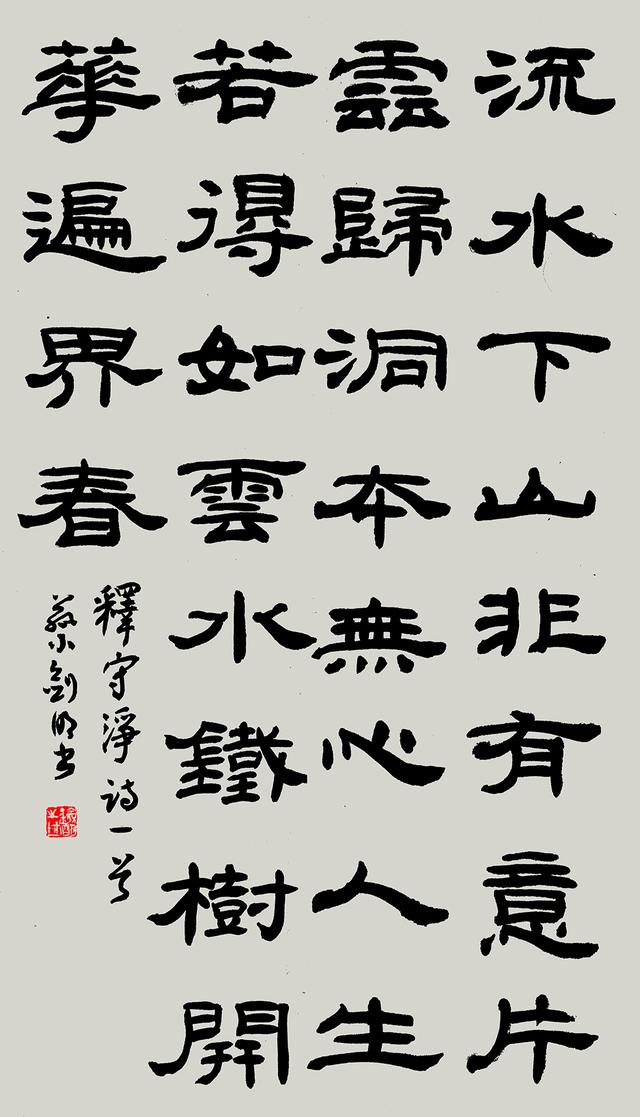 流水下山非有意片
雲歸洞本無心人生
若得如雲水鐵樹開
華遍界春
釋守淨詩一首
蔡小劍明書